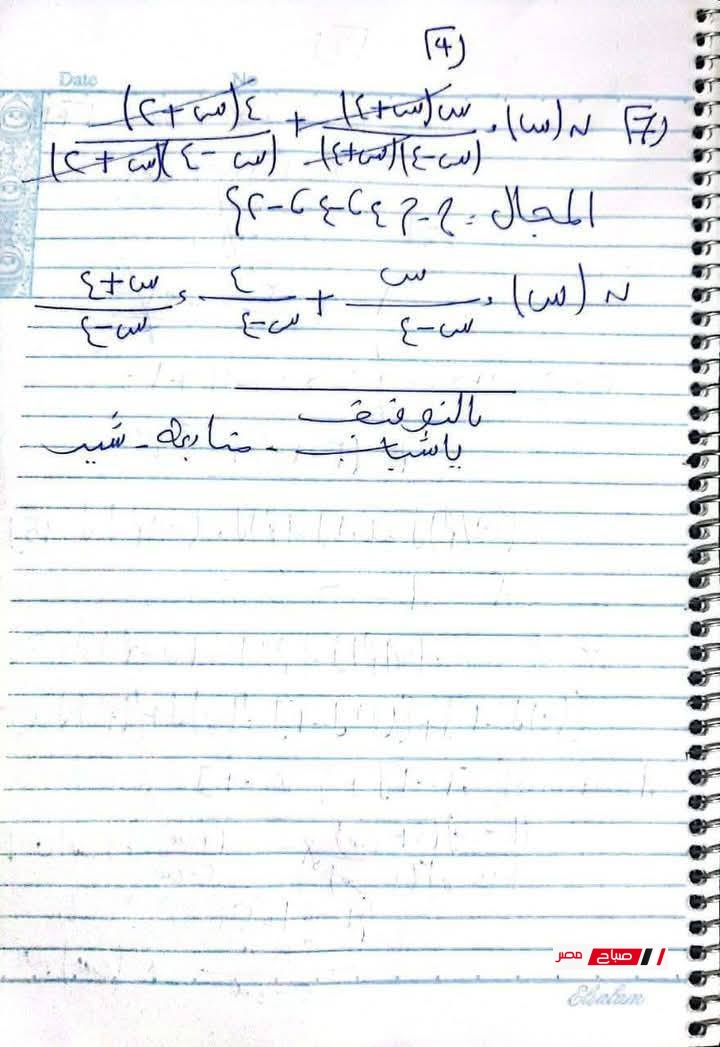 [4]
Date No
[7] ن(س) = س(س+٤)/(س-٤)(س+٤) + ٤(س+٢)/(س-٤)(س+٢)
المجال = ح - {٤، -٤، -٢}
ن(س) = س/س-٤ + ٤/س-٤ = س+٤/س-٤
بالتوفيق
ياشباب - متابعة - شير
صباح مصر
Elsalam